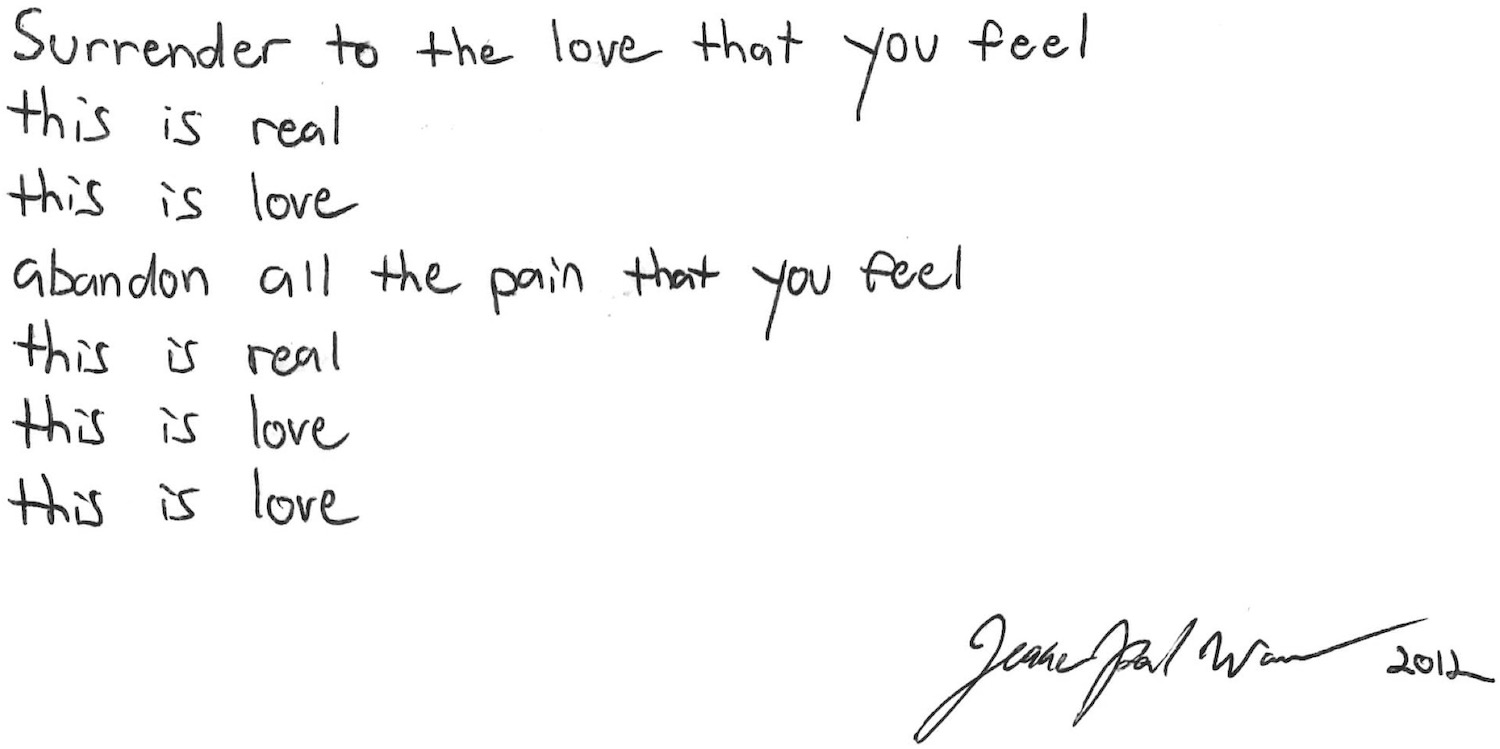 Surrender to the love that you feel
this is real
this is love
abandon all the pain that you feel
this is real
this is love
this is love
Jesse Paul 2012